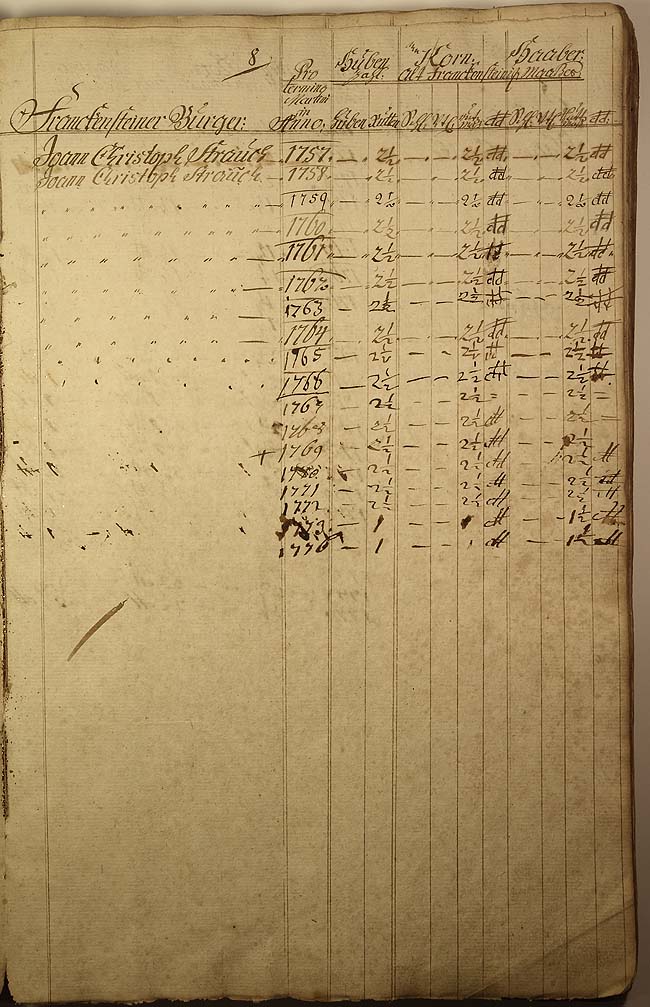 8
Pro termino Martini in Anno.
Huben zahl.
Korn.
Haaber.
alt Franckensteinis. Maas
Franckensteiner Burger:
Huben
Joann Christoph Strauch — 1757. — 2½ 2½ dd 2½ dd
Joann Christoph Strauch — 1758. — 2½ 2½ dd 2½ dd
1759 — 2½ 2½ dd 2½ dd
1760 — 2½ 2½ dd 2½ dd
1761 — 2½ 2½ dd 2½ dd
1762 — 2½ 2½ dd 2½ dd
1763 — 2½ 2½ dd 2½ dd
1764 — 2½ 2½ dd 2½ dd
1765 — 2½ 2½ dd 2½ dd
1766 — 2½ 2½ dd 2½ dd
1767 — 2½ 2½ = 2½ =
1768 — 2½ 2½ dd 2½ —
+ 1769 — 2½ 2½ dd 2½
2½ 2½ dd 2½ dd
1771 — 2½ 2½ dd 2½ dd
1772 — 2½ 2½ dd 2½ dd
1773 — 1 1 dd 1½ dd
— 1 1 dd 1½ dd